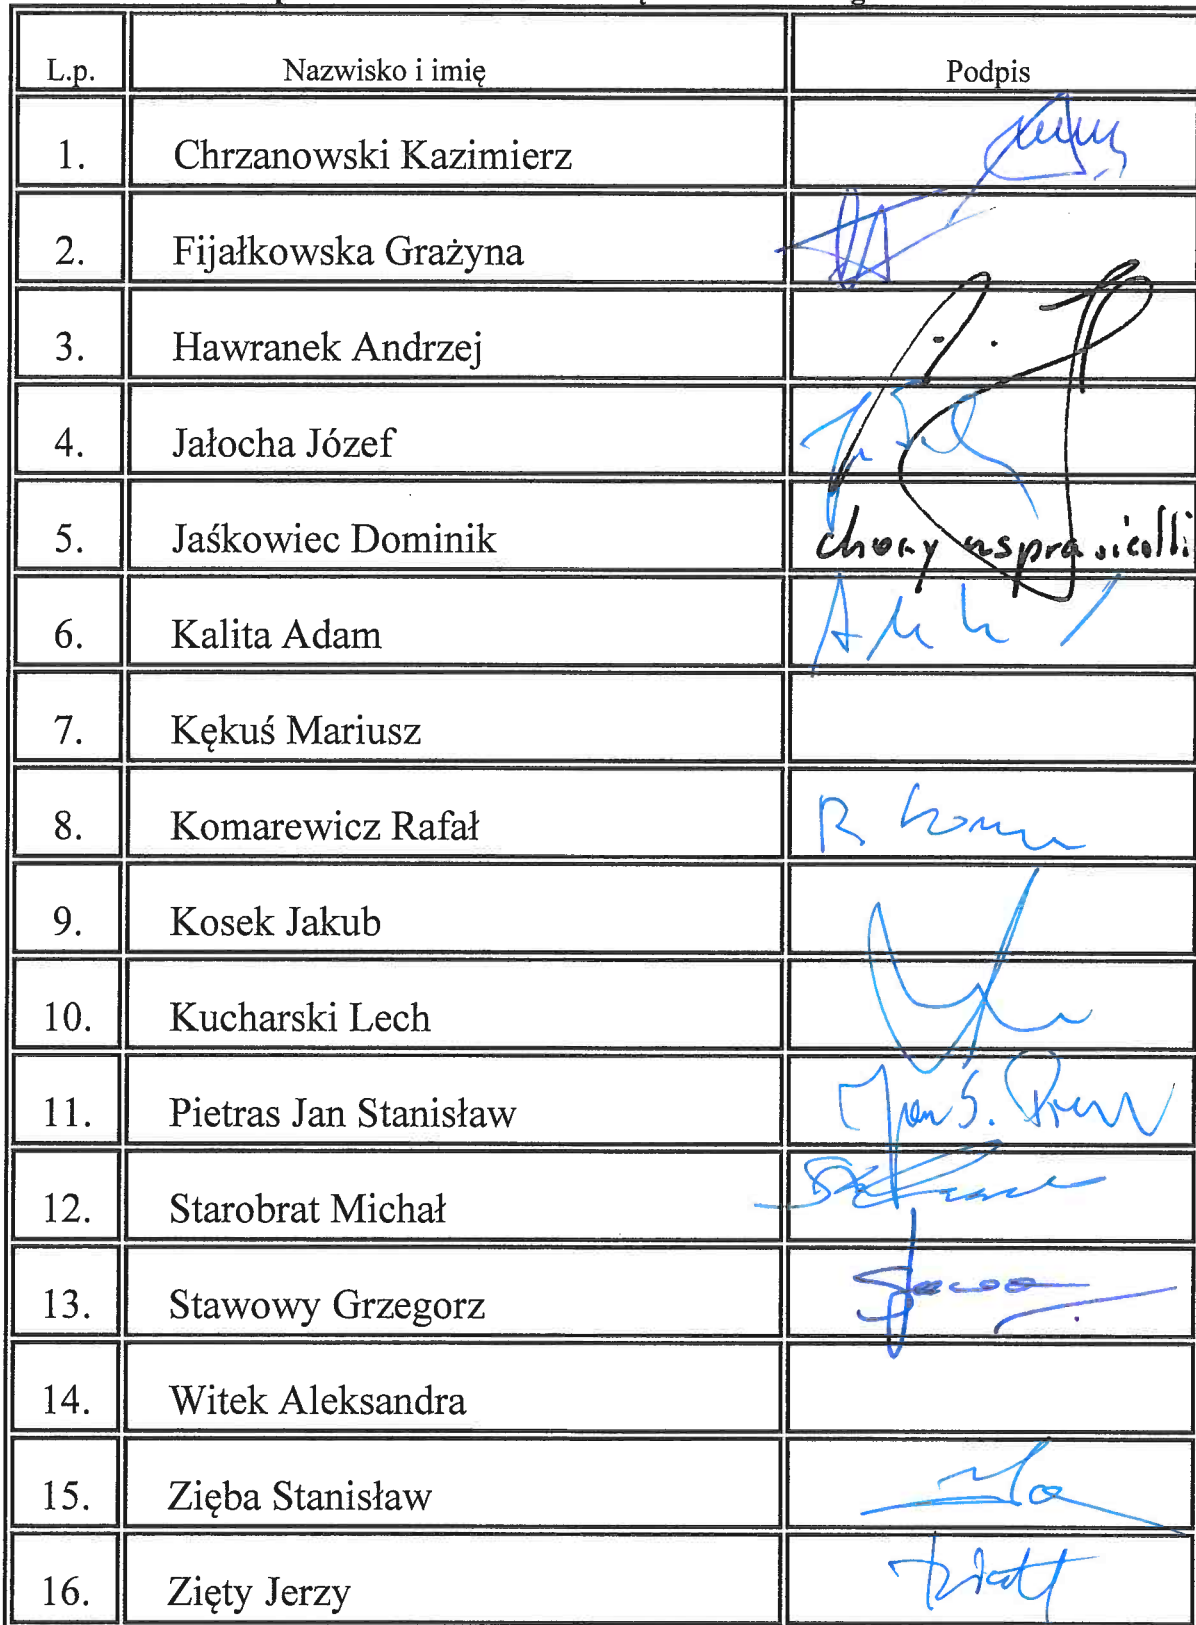 L.p. Nazwisko i imię Podpis
1. Chrzanowski Kazimierz
2. Fijałkowska Grażyna
3. Hawranek Andrzej
4. Jałocha Józef
5. Jaśkowiec Dominik chory
6. Kalita Adam
7. Kękuś Mariusz
8. Komarewicz Rafał R
9. Kosek Jakub
10. Kucharski Lech
11. Pietras Jan Stanisław Jan S.
12. Starobrat Michał
13. Stawowy Grzegorz
14. Witek Aleksandra
15. Zięba Stanisław
16. Zięty Jerzy